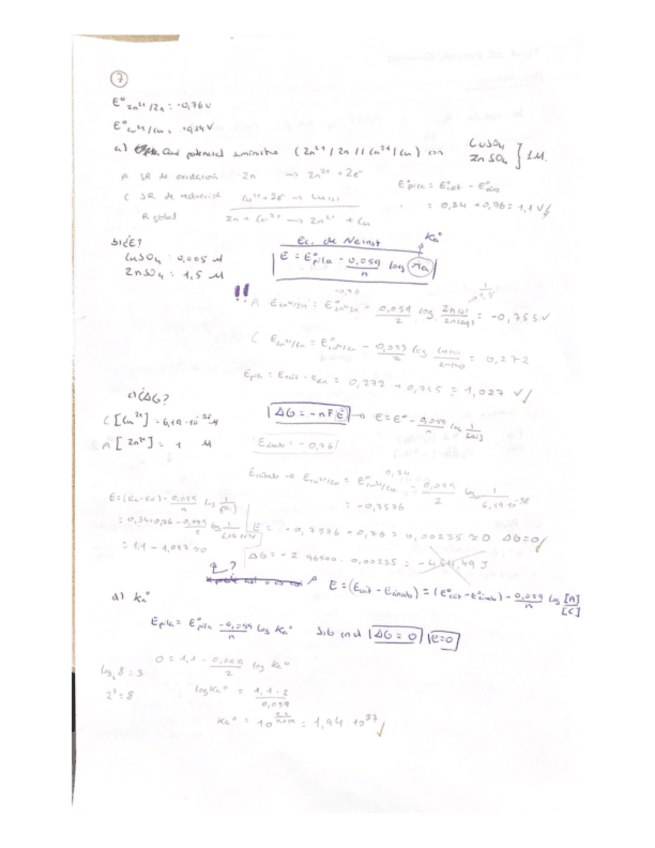 7
E° Zn²⁺/Zn = -0,76 V
E° Cu²⁺/Cu = +0,34 V
a) Qué potencial suministra (Zn²⁺/Zn // Cu²⁺/Cu) con CuSO₄ ZnSO₄ } 1 M.
A SR de oxidación Zn → Zn²⁺ + 2e⁻
C SR de reducción Cu²⁺ + 2e⁻ → Cu(s)
R global Zn + Cu²⁺ → Zn²⁺ + Cu
E°pila = E°cát - E°
= 0,34 + 0,76 = 1,1 V
b) ¿E?
CuSO₄ : 0,005 M
ZnSO₄ : 1,5 M
Ec. de Nernst
E = E°pila - 0,059/n log
!! A E Zn²⁺/Zn = E° Zn²⁺/Zn - 0,059/2 log = -0,755 V
C E Cu²⁺/Cu = E° Cu²⁺/Cu - 0,059/2 log = 0,272
Epila = Ecát - = 0,272 + 0,755 = 1,027 V
c) ¿ΔG?
C [Cu²⁺] = 6,19·10⁻³⁸ M
A [Zn²⁺] = 1 M
ΔG = -nFE → E = E° - 0,059/n
Eánodo = -0,76
Ecátodo → E Cu²⁺/Cu = E° Cu²⁺/Cu 0,34 - 0,059/2 log 1/6,19·10⁻³⁸
= -0,7576
= 0,34+0,76 - 0,059/2 log
E = -0,7576 + 0,76 = 0,00235 ≈ 0 ΔG=0
ΔG = -2 · 96500 · 0,00235 =
?
E = (Ecát - Eánodo) = (E°cát - E°ánodo) - 0,059/n log [A]/[C]
d) Ka°
Epila = E°pila - 0,059/n log Ka° Sib en el ΔG = 0 E=0
log₂ 8 = 3
2³ = 8
0 = 1,1 - 0,059/2 log Ka°
log Ka° = 1,1·2/0,059
= 1,94 · 10³⁷